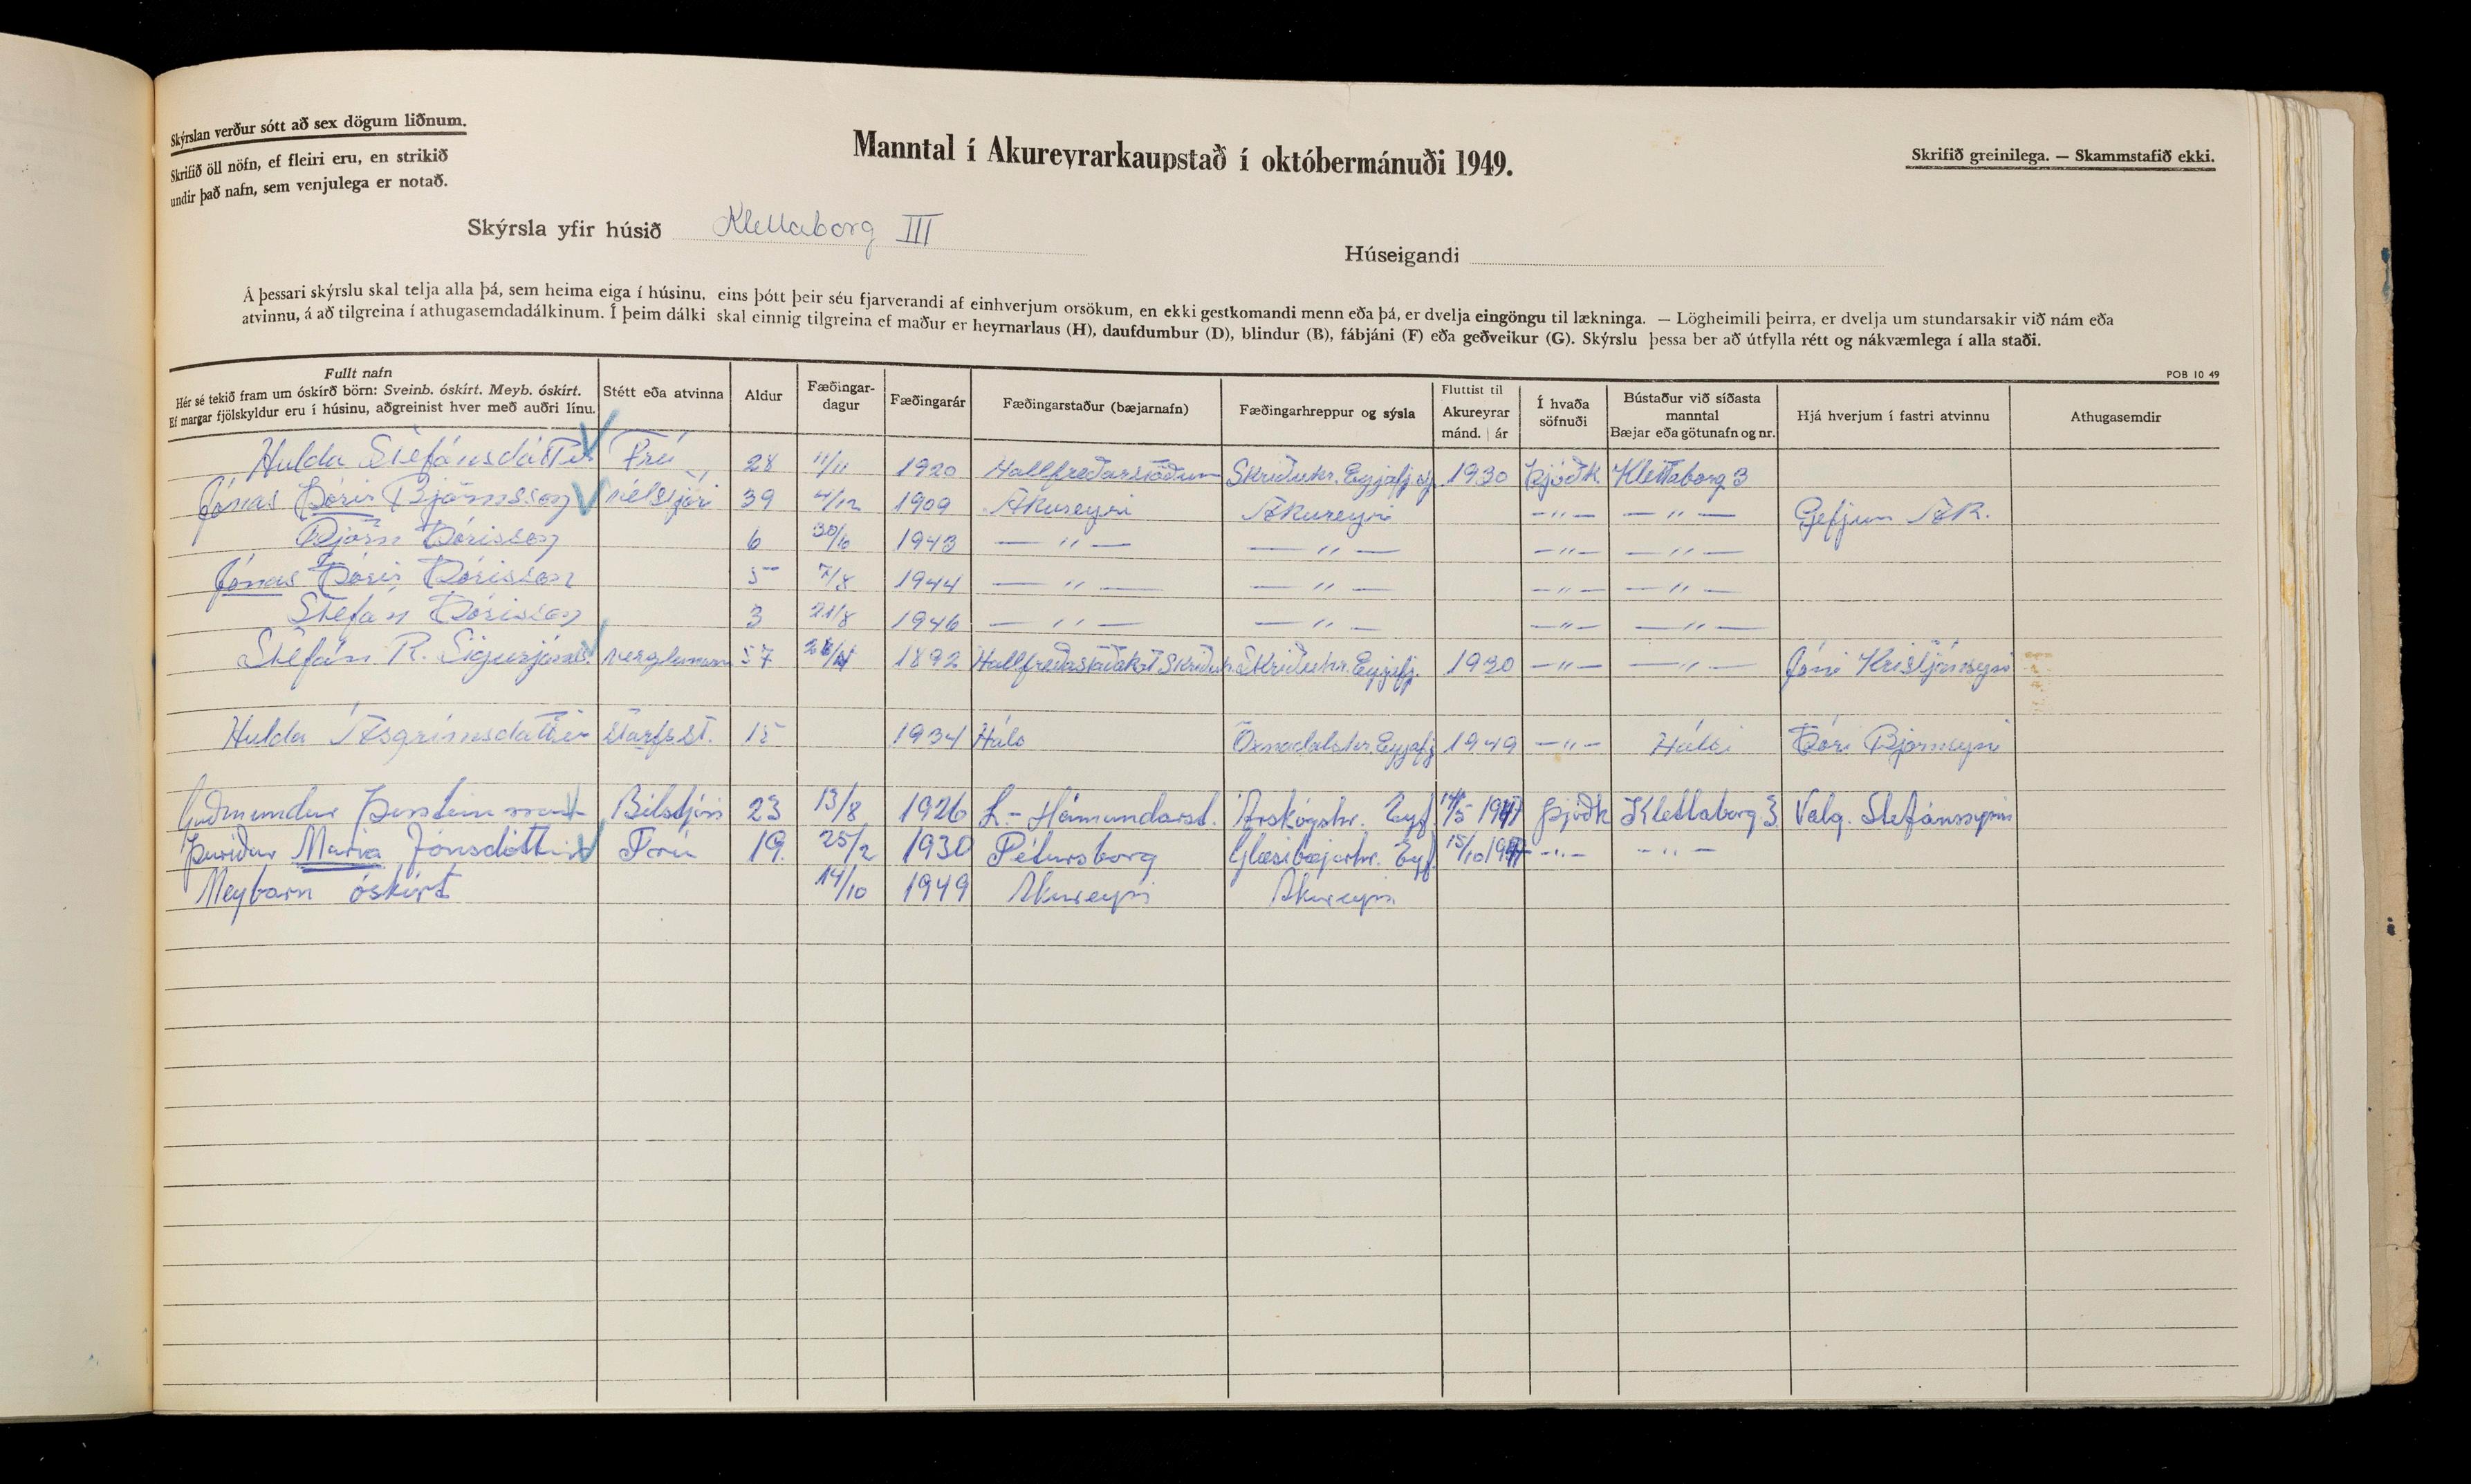 Skýrslan verður sótt að sex dögum liðnum.
Skrifið öll nöfn, ef fleiri eru, en strikið
undir það nafn, sem venjulega er notað.
Manntal í Akureyrarkaupstað í októbermánuði 1949.
Skrifið greinilega. — Skammstafið ekki.
Skýrsla yfir húsið Klettaborg III
Húseigandi
Á þessari skýrslu skal telja alla þá, sem heima eiga í húsinu, eins þótt þeir séu fjarverandi af einhverjum orsökum, en ekki gestkomandi menn eða þá, er dvelja eingöngu til lækninga. — Lögheimili þeirra, er dvelja um stundarsakir við nám eða
atvinnu, á að tilgreina í athugasemdadálkinum. Í þeim dálki skal einnig tilgreina ef maður er heyrnarlaus (H), daufdumbur (D), blindur (B), fábjáni (F) eða geðveikur (G). Skýrslu þessa ber að útfylla rétt og nákvæmlega í alla staði.
POB 10 49
Fullt nafn
Hér sé tekið fram um óskírð börn: Sveinb. óskírt. Meyb. óskírt.
Ef margar fjölskyldur eru í húsinu, aðgreinist hver með auðri línu.
Stétt eða atvinna
Aldur
Fæðingar-
dagur
Fæðingarár
Fæðingarstaður (bæjarnafn)
Fæðingarhreppur og sýsla
Fluttist til
Akureyrar
mánd. | ár
Í hvaða
söfnuði
Bústaður við síðasta
manntal
Bæjar eða götunafn og nr.
Hjá hverjum í fastri atvinnu
Athugasemdir
Hulda Stefánsdóttir Frú 28 11/11 1920 Hallfreðarstöðum Skriðuhr. Eyjafj.s. 1930 Þjóðk. Klettaborg 3
Jónas Þórir Björnsson vélstjóri 39 4/12 1909 Akureyri Akureyri —"— —"— Gefjun AK.
Björn Þórisson 6 30/10 1943 —"— —"— —"— —"—
Jónas Þórir Þórisson 5 7/8 1944 —"— —"— —"— —"—
Stefán Þórisson 3 21/8 1946 —"— —"— —"— —"—
Stefán R. Sigurjónss. verzlunarm 57 1892 Skriðuhr. Eyjafj. 1930 —"— —"— Jóni Kristjánssyni
Hulda Ásgrímsdóttir starfsst. 15 1934 Háls Öxnadalshr. Eyjafj 1949 —"— Hálsi Þóri Björnssyni
Guðmundur Þorsteinsson Bílstjóri 23 13/8 1926 L.-Hámundarst. Árskógshr. Eyf. 14/5 1947 Þjóðk Klettaborg 3 Valg. Stefánssyni
Þuríður María Jónsdóttir Frú 19. 25/2 1930 Pétursborg Glæsibæjarhr. Eyf. 15/10 1947 —"— —"—
Meybarn óskírt 14/10 1949 Akureyri Akureyri